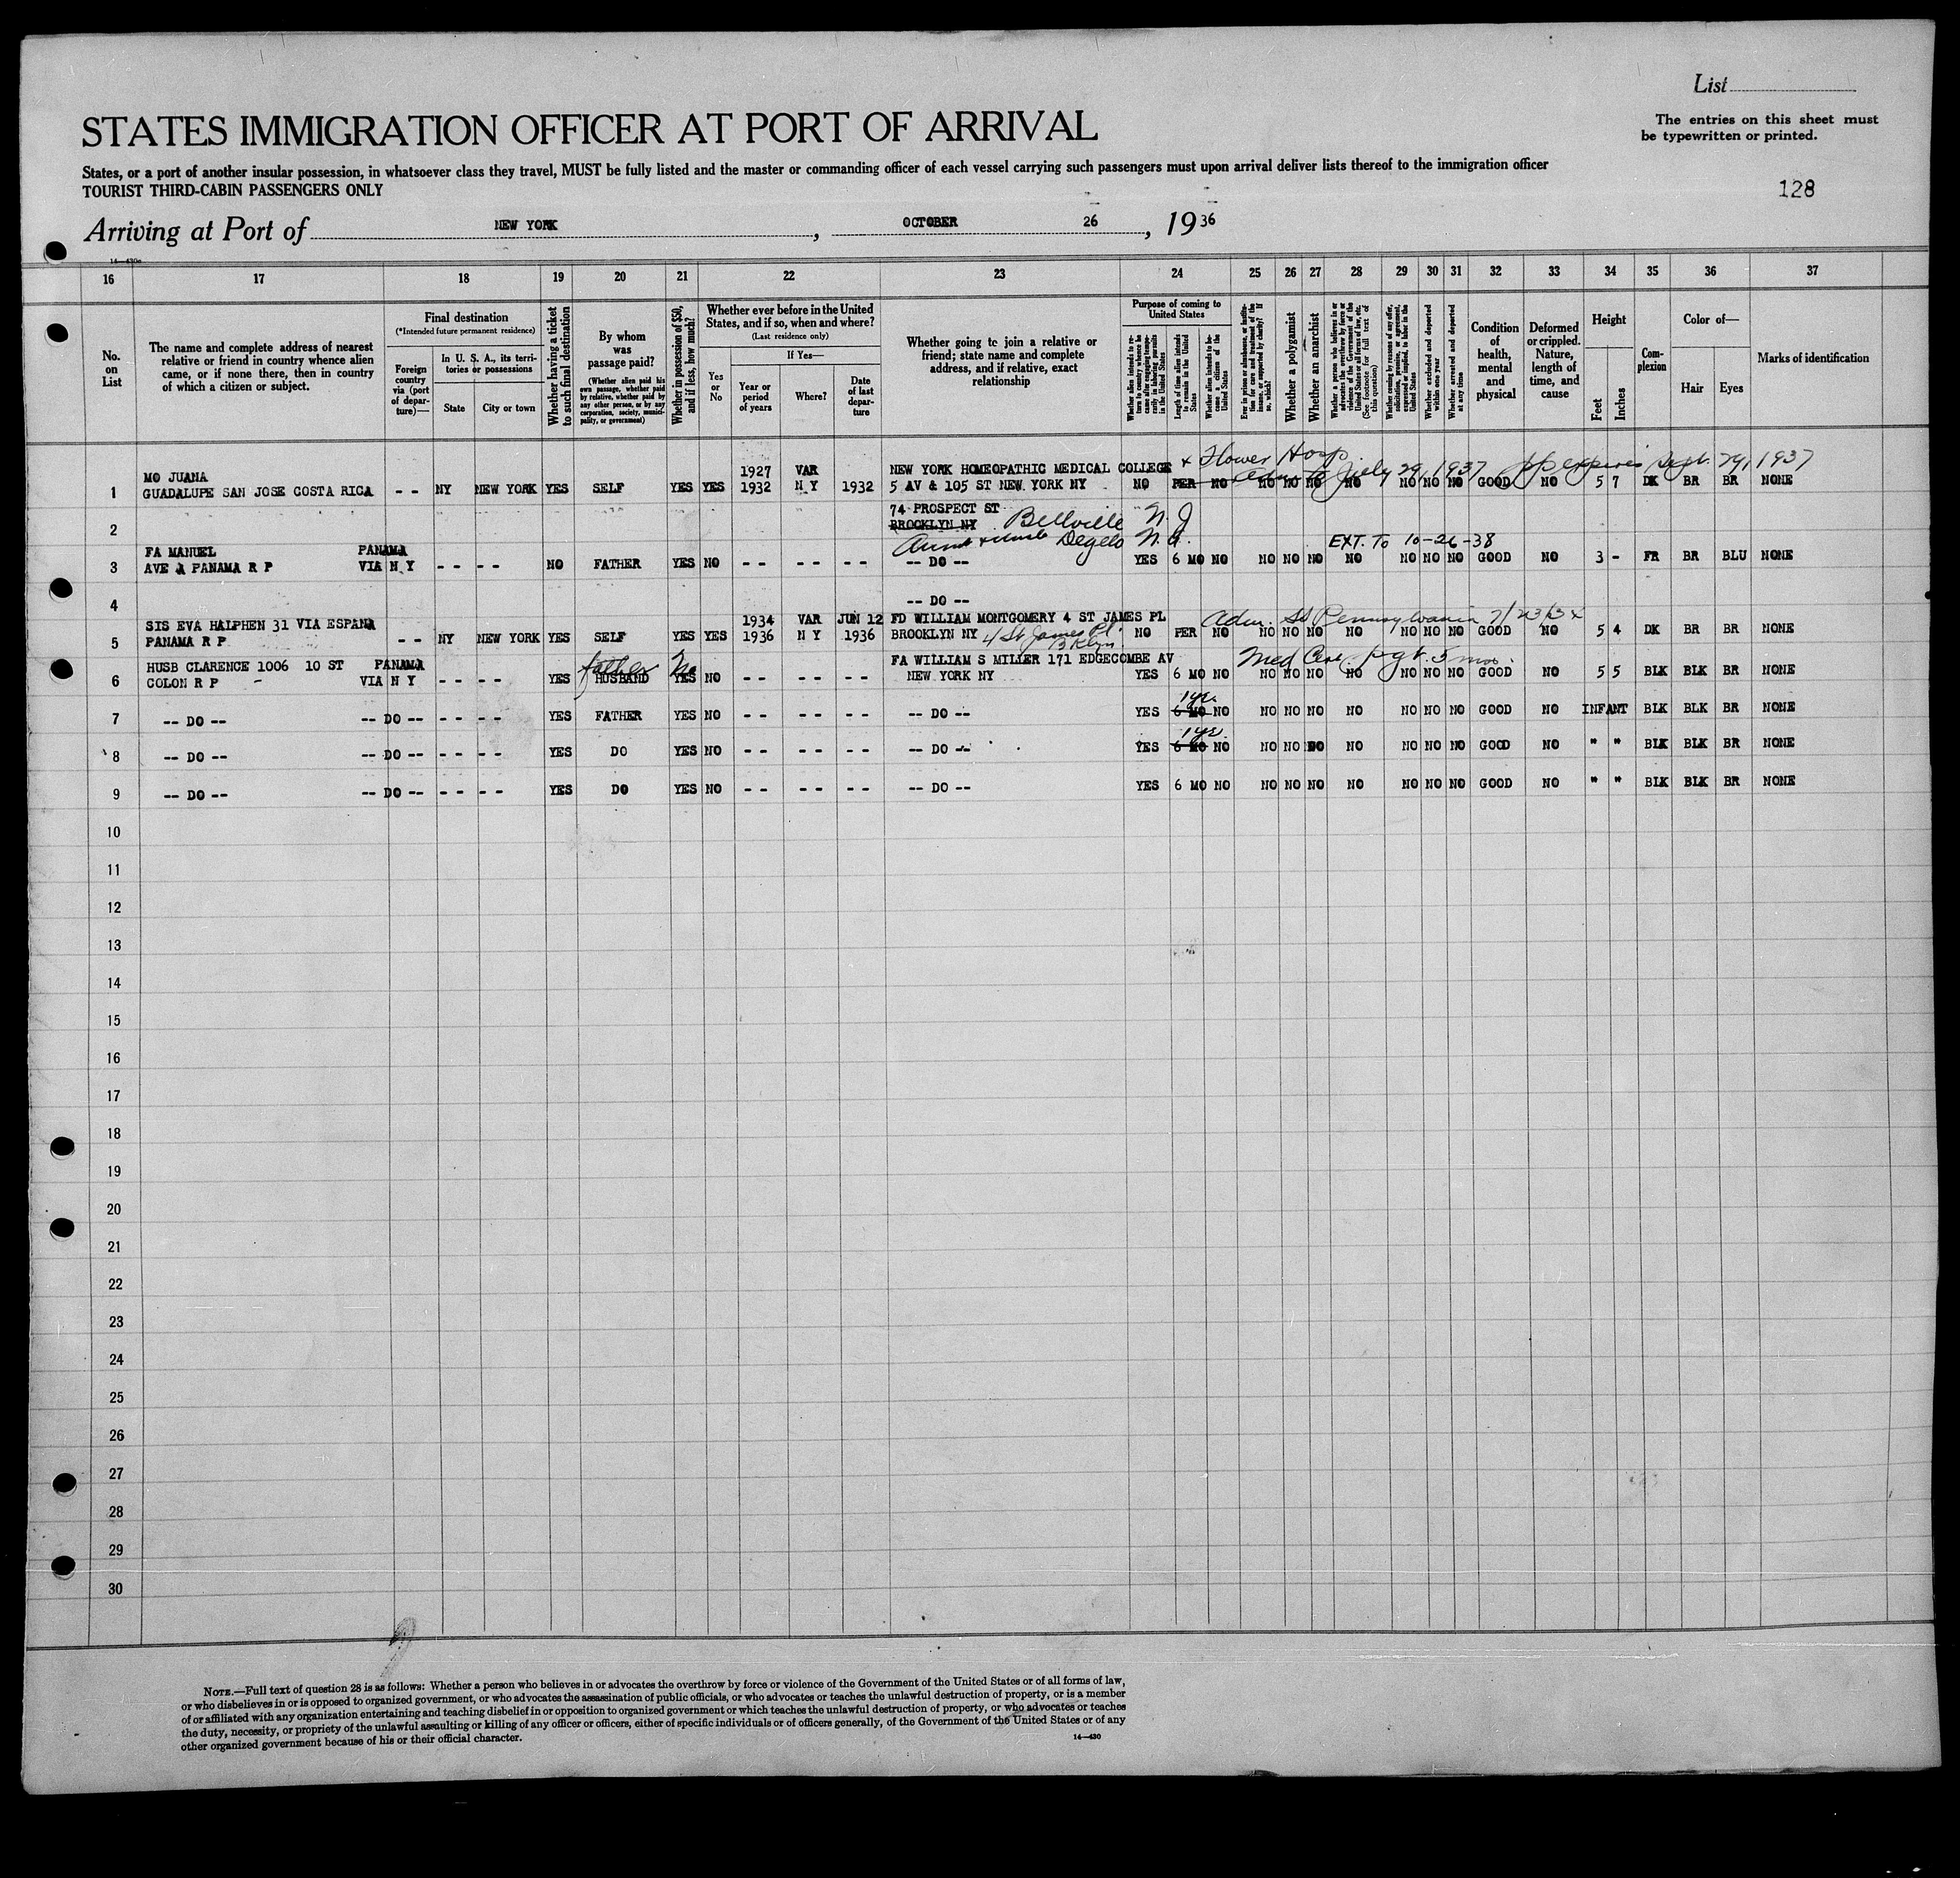 List
STATES IMMIGRATION OFFICER AT PORT OF ARRIVAL
The entries on this sheet must
be typewritten or printed.
States, or a port of another insular possession, in whatsoever class they travel, MUST be fully listed and the master or commanding officer of each vessel carrying such passengers must upon arrival deliver lists thereof to the immigration officer
TOURIST THIRD-CABIN PASSENGERS ONLY
128
Arriving at Port of NEW YORK, OCTOBER 26, 1936
14—430c
16 17 18 19 20 21 22 23 24 25 26 27 28 29 30 31 32 33 34 35 36 37
No. on List
The name and complete address of nearest relative or friend in country whence alien came, or if none there, then in country of which a citizen or subject.
Final destination
(*Intended future permanent residence)
Foreign country via (port of departure)—
In U. S. A., its territories or possessions
State
City or town
Whether having a ticket to such final destination
By whom was passage paid?
(Whether alien paid his own passage, whether paid by relative, whether paid by any other person, or by any corporation, society, municipality, or government)
Whether in possession of $50, and if less, how much?
Whether ever before in the United States, and if so, when and where?
(Last residence only)
Yes or No
If Yes—
Year or period of years
Where?
Date of last departure
Whether going to join a relative or friend; state name and complete address, and if relative, exact relationship
Purpose of coming to United States
Whether alien intends to return to country whence he came after engaging temporarily in laboring pursuits in the United States
Length of time alien intends to remain in the United States
Whether alien intends to become a citizen of the United States
Ever in prison or almshouse, or institution for care and treatment of the insane, or supported by charity? If so, which?
Whether a polygamist
Whether an anarchist
Whether a person who believes in or advocates the overthrow by force or violence of the Government of the United States or all forms of law, etc. (See footnote for full text of this question)
Whether coming by reason of any offer, solicitation, promise, or agreement, expressed or implied, to labor in the United States
Whether excluded and deported within one year
Whether arrested and deported at any time
Condition of health, mental and physical
Deformed or crippled. Nature, length of time, and cause
Height
Feet
Inches
Complexion
Color of—
Hair
Eyes
Marks of identification
MO JUANA 1927 VAR NEW YORK HOMEOPATHIC MEDICAL COLLEGE + Flower Hosp.
Adm to July 29, 1937 pp expires Sept. 29, 1937
1 GUADALUPE SAN JOSE COSTA RICA - - NY NEW YORK YES SELF YES YES 1932 N Y 1932 5 AV & 105 ST NEW YORK NY NO PER NO NO NO NO NO NO NO NO GOOD NO 5 7 DK BR BR NONE
74 PROSPECT ST
2 BROOKLYN NY Bellville N.J
Aunt + Uncle
FA MANUEL PANAMA EXT. TO 10-26-38
3 AVE A PANAMA R P VIA N Y - - - - NO FATHER YES NO - - - - - - -- DO -- YES 6 MO NO NO NO NO NO NO NO NO GOOD NO 3 - FR BR BLU NONE
4 -- DO --
SIS EVA HALPHEN 31 VIA ESPANA 1934 VAR JUN 12 FD WILLIAM MONTGOMERY 4 ST JAMES PL Adm. SS Pennsylvania
5 PANAMA R P - - NY NEW YORK YES SELF YES YES 1936 N Y 1936 BROOKLYN NY 4 St James Pl. Bklyn. NO PER NO NO NO NO NO NO NO NO GOOD NO 5 4 DK BR BR NONE
HUSB CLARENCE 1006 10 ST PANAMA father No FA WILLIAM S MILLER 171 EDGECOMBE AV Med Cert. pgt. 5 mos.
6 COLON R P - VIA N Y - - - - YES HUSBAND YES NO - - - - - - NEW YORK NY YES 6 MO NO NO NO NO NO NO NO NO GOOD NO 5 5 BLK BLK BR NONE
1 yr.
7 -- DO -- -- DO -- - - - - YES FATHER YES NO - - - - - - -- DO -- YES 6 MO NO NO NO NO NO NO NO NO GOOD NO INFANT BLK BLK BR NONE
1 yr.
8 -- DO -- -- DO -- - - - - YES DO YES NO - - - - - - -- DO -- YES 6 MO NO NO NO NO NO NO NO NO GOOD NO " " BLK BLK BR NONE
9 -- DO -- -- DO -- - - - - YES DO YES NO - - - - - - -- DO -- YES 6 MO NO NO NO NO NO NO NO NO GOOD NO " " BLK BLK BR NONE
10
11
12
13
14
15
16
17
18
19
20
21
22
23
24
25
26
27
28
29
30
NOTE.—Full text of question 28 is as follows: Whether a person who believes in or advocates the overthrow by force or violence of the Government of the United States or of all forms of law,
or who disbelieves in or is opposed to organized government, or who advocates the assassination of public officials, or who advocates or teaches the unlawful destruction of property, or is a member
of or affiliated with any organization entertaining and teaching disbelief in or opposition to organized government or which teaches the unlawful destruction of property, or who advocates or teaches
the duty, necessity, or propriety of the unlawful assaulting or killing of any officer or officers, either of specific individuals or of officers generally, of the Government of the United States or of any
other organized government because of his or their official character.
14—430